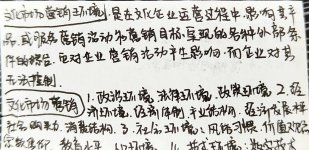 文化市场营销环境,是在文化企业运营过程中影响其产
品或服务营销活动和营销目标实现的各种外部条
件的综合。它对企业营销活动产生影响,而企业对其
无法控制。
文化市场营销 1.政治环境,法律环境,政策环境 2.经
济环境,经济体制,产业结构,经济发展
社会购买力,消费结构。3.社会环境:风俗习惯,价值观念
宗教信仰 教育水平